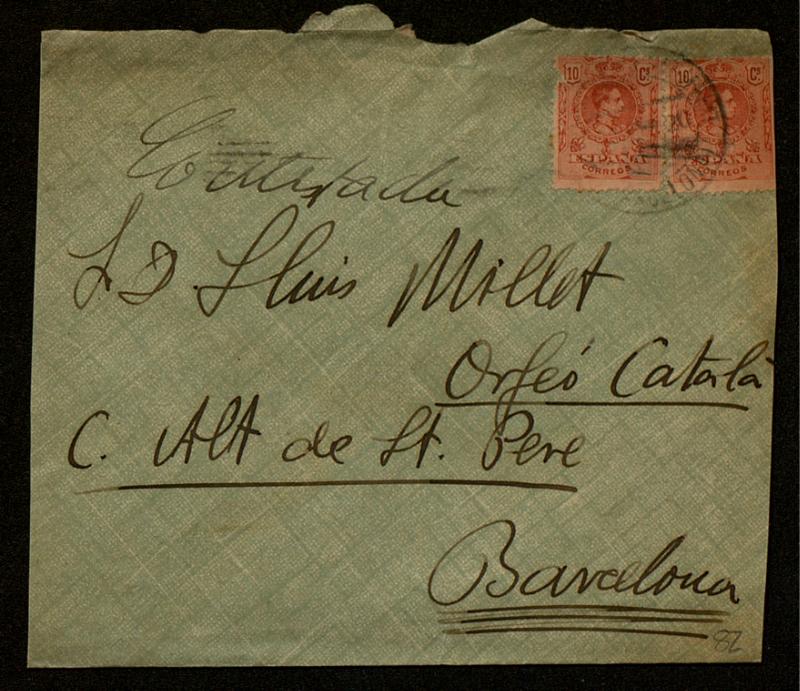 10 Cs 10 Cs
ESPAÑA ESPAÑA
CORREOS CORREOS
Contestada
S. D. Lluis Millet
Orfeó Català
C. Alt de St. Pere
Barcelona
82